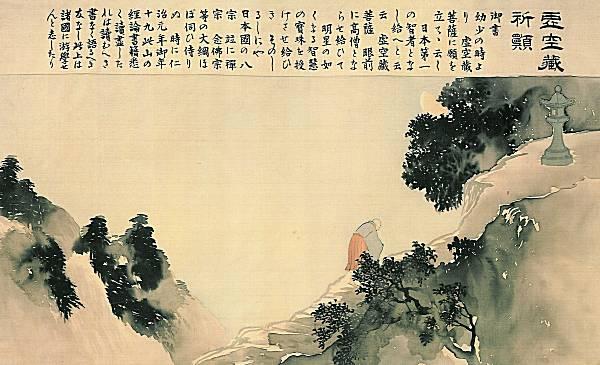 虚空藏
祈願
御書
幼少の時よ
り 虚空藏
菩薩に願を
立てゝ云く
日本第一
の智者とな
し給へと云
云 虚空藏
菩薩 眼前
に高僧とな
らせ給ひて
明星の如
くなる智慧
の寶珠を授
けさせ給ひ
き そのし
るしにや
日本國の八
宗 並に禪
宗 念佛宗
等の大綱ほ
ぼ伺ひ侍り
ぬ 時に仁
治元年御年
十九此山の
經論書籍悉
く讀盡した
れは讀むへき
書なく語るへき
友なし此上は
諸國に游學せ
んと志したり